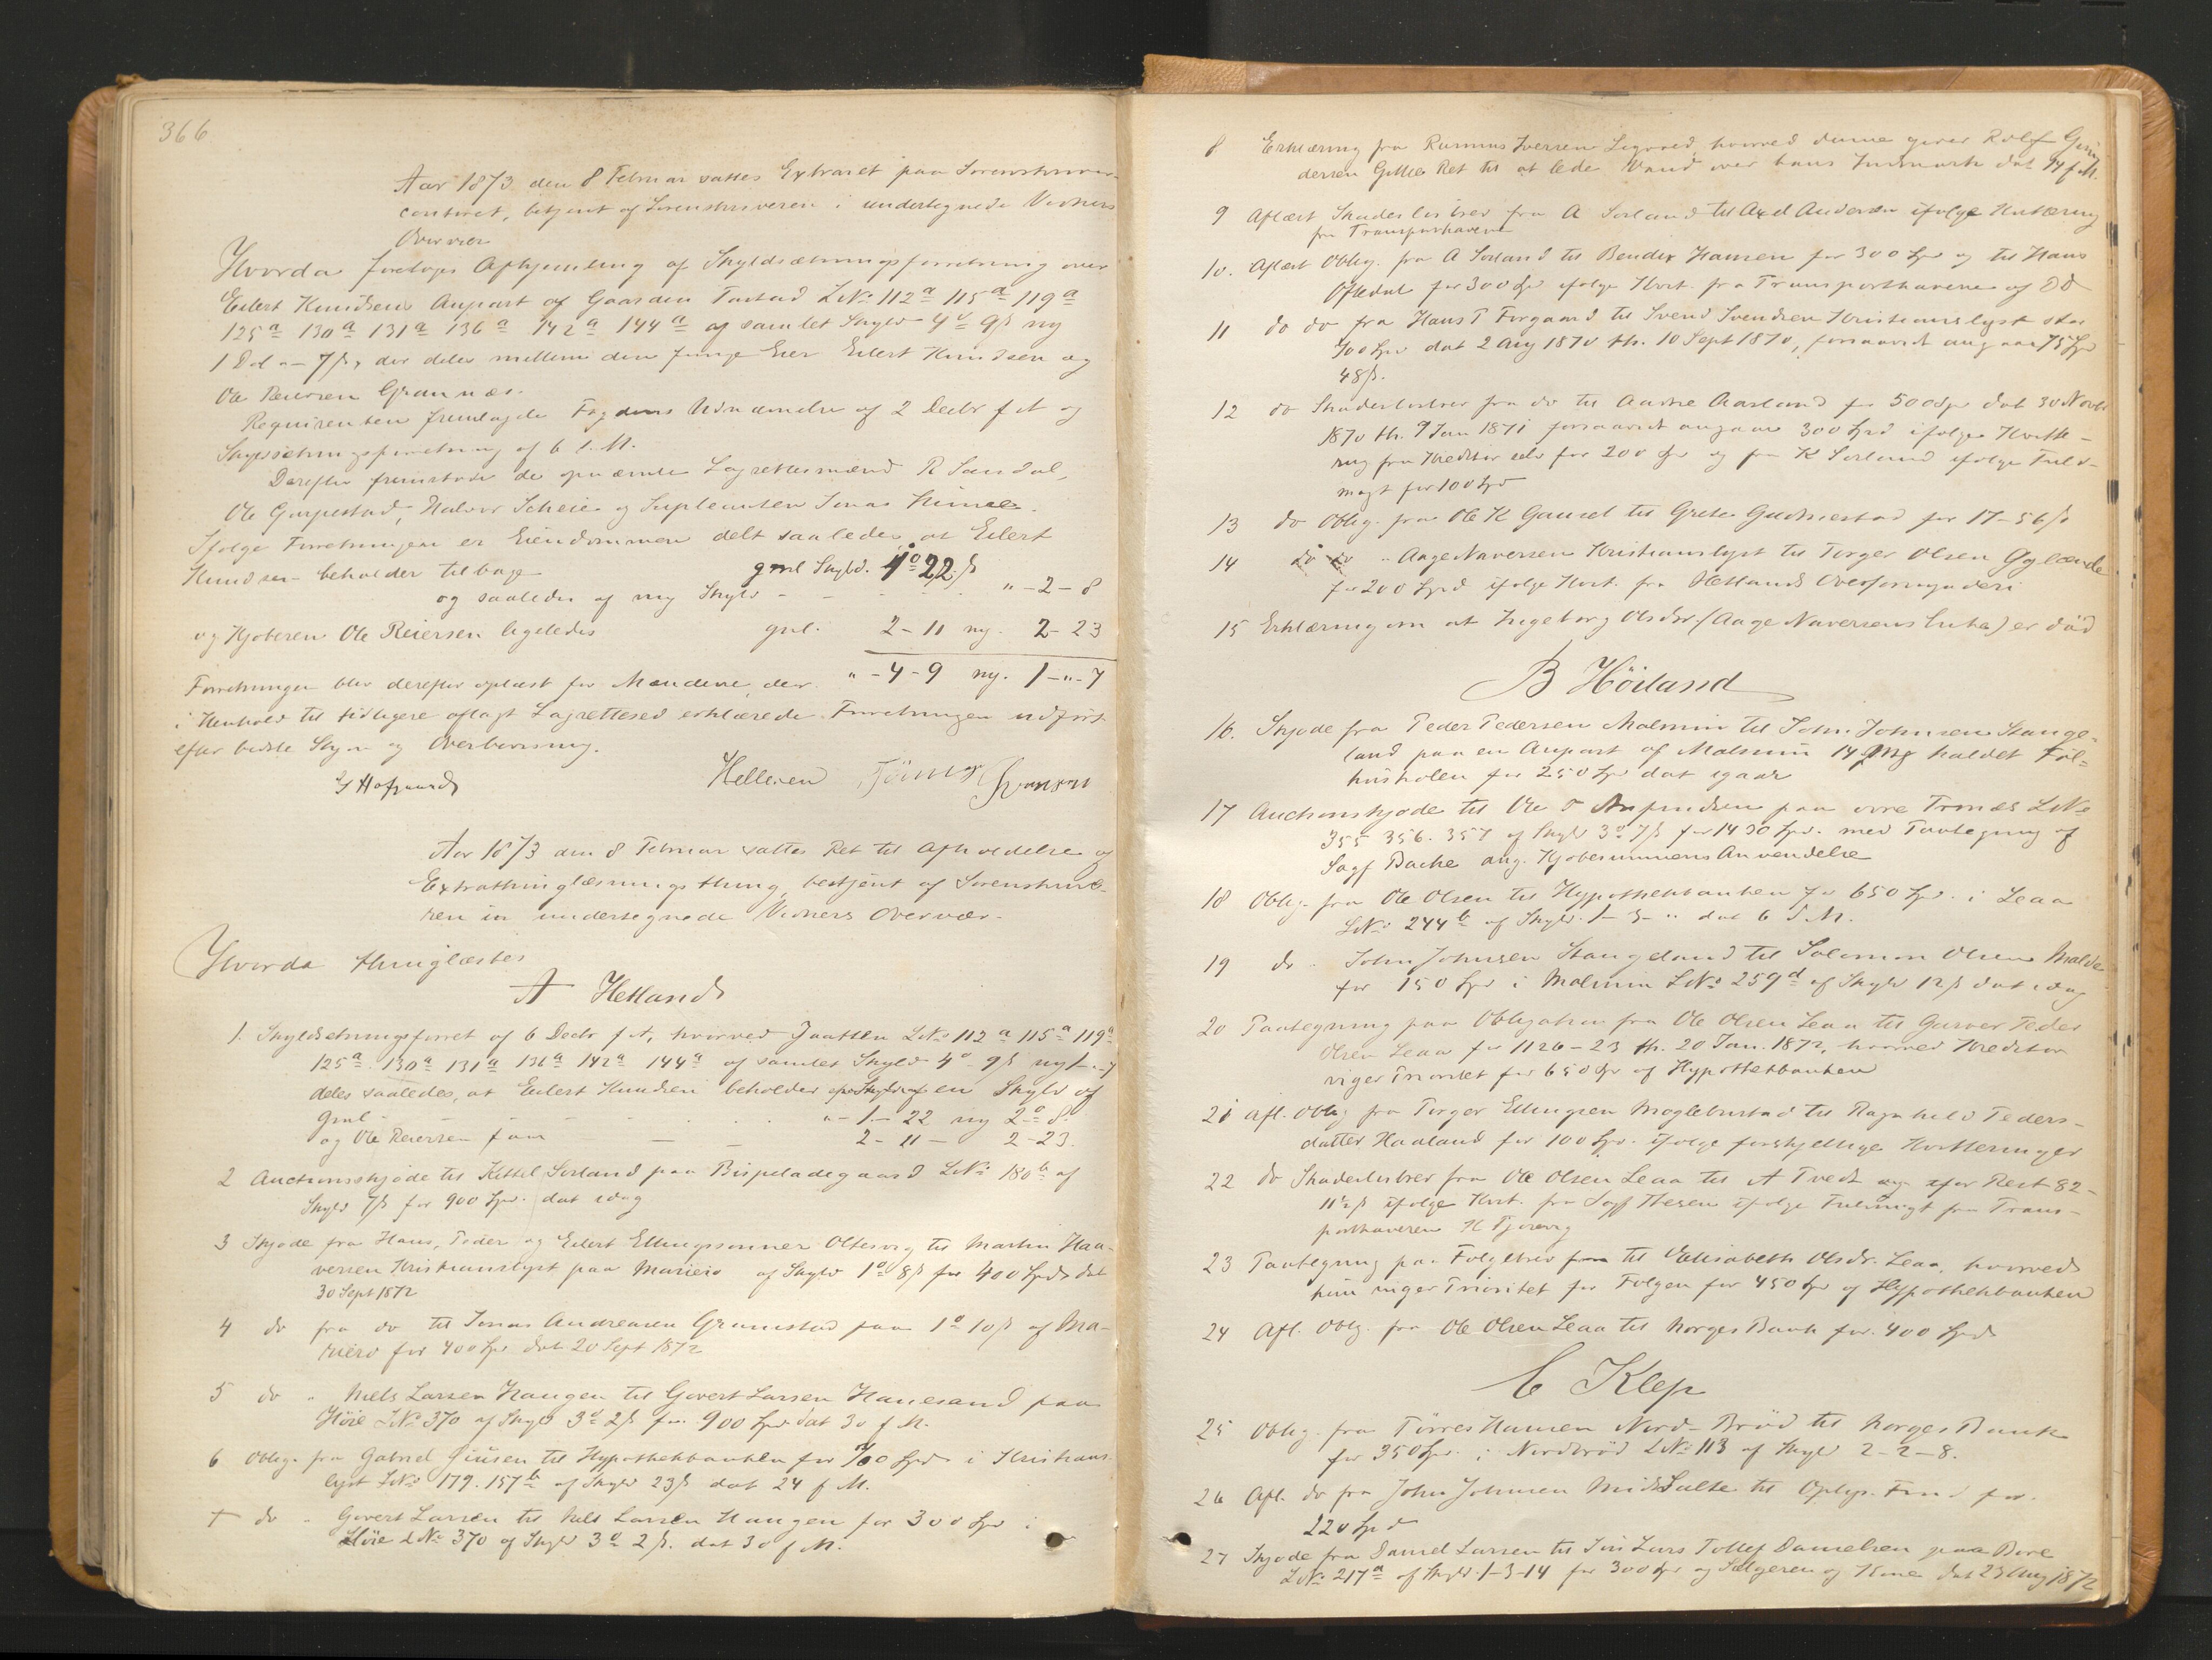 366
Aar 1873 den 8 Februar sattes Extraret paa Sorenskriver-
contoret, betjent af Sorenskriveren i undertegnede Vidners
Overvær
Hvorda foretoges Afhjemling af Skyldsætningsforretning over
Eilert Knudsens Anpart af Gaarden LNo 112a 115a 119a
125a 130a 131a 136a 142a 144a af samlet Skyld 4d 9ß ny
1 Dal " - 7ß, der deles mellem den Eier Eilert Knudsen og
Ole Reiersen Grannæs.
Requirenten fremlagde Fogdens Udnævnelse af 2 Decbr f A og
Skyldsætningsforretning af 6 s. M.
Derefter fremstode de opnævnte Lagrettesmænd R Sandal,
Ole Garpestad, Halvor Scheie og Supleanten Jonas
Ifølge Forretningen er Eiendommen delt saaledes, at Eilert
Knudsen beholder tilbage gml Skyld. 1o 22 ß
og saaledes af ny Skyld - - - - " - 2 - 8
og Kjøberen Ole Reiersen ligeledes gml. 2 - 11 ny. 2 - 23
" - 4 - 9 ny. 1 - " - 7
Forretningen blev derefter oplæst for Mændene, der
i Henhold til tidligere aflagt Lagrettesed erklærede Forretningen udført
efter bedste Skjøn og Overbevisning.
Hellesen
Aar 1873 den 8 Februar sattes Ret til Afholdelse af
Extrathinglæsningsthing, betjent af Sorenskrive-
ren i undertegnede Vidners Overvær.
Hvorda thinglæstes
A Hetland
1. Skyldsetningsforret af 6 Decbr f A, hvorved Jaatten LNo 112a 115a 119a
125a 130a 131a 136a 142a 144a af samlet Skyld 4d 9ß ny 1 - " - 7
deles saaledes, at Eilert Knudsen beholder en Skyld af
gml - - - - " - 1 - 22 ny 2o 8
og Ole Reiersen faar - - 2 - 11 - 2 - 23.
2 Auctionsskjøde til Kittel Sørland paa Bispeladegaard LNo 180b af
Skyld 7ß for 900 Spd. dat idag
3 Skjøde fra Hans, Peder og Eilert Ellingssønner til Martin Haa-
versen Kristianslyst paa Mariero af Skyld 1o 8ß for 400 Spd dat
30 Sept 1872
4 do fra do til Jonas Andreasen Gramstad paa 1o 10ß af Ma-
riero for 400 Spd dat 20 Sept 1872
5 do " Niels Larsen Haugen til Govert Larsen Hanesand paa
Høie LNo 370 af Skyld 3d 2ß for 900 Spd dat 30 f M.
6 Oblig. fra Gabriel til Hypothekbanken for Spd i Kristians
lyst LNo 179. 157b af Skyld 23ß dat 24 f M.
7 do " Govert Larsen til Niels Larsen Haugen for 300 Spd i
Høie LNo 370 af Skyld 3d 2ß. dat 30 f M.
8 Erklæring fra Rasmus Iversen hvorved denne giver Rolf
dersen Ret til at lede Vand over hans Indmark dat 14 f M.
9 Aflæst Skadesløsbrev fra A Sørland til Axel Andersen ifølge Kvitering
fra Transporthaveren
10. Aflæst Oblig. fra A Sørland til Bendix Hansen for 300 Spd og til Hans
Oftedal for 300 Spd ifølge Kvit. fra Transporthaverne af DD
11 do do fra Hans T Forgaard til Svend Svendsen Kristianslyst stor
700 Spd dat 2 Aug 1870 th. 10 Sept 1870, forsaavidt angaar 75 Spd
48ß.
12 do Skadesløsbrev fra do til Aadne Aarland for 500 Spd dat 30 Novbr
1870 th. 9 Jan 1871 forsaavidt angaar 300 Spd ifølge Kvitte-
ring fra Kreditor selv for 200 Spd og fra K Sørland ifølge Fuld-
magt for 100 Spd
13 do Oblig. fra Ole K Gausel til Grete Gudmestad for 17 - 56ß
14 do do " Aage Naversen Kristianslyst til Torger Olsen
for 200 Spd ifølge Kvit. fra Hetlands Overformynderi
15 Erklæring om at Ingeborg Olsdtr. (Aage Naversens Enke) er død
B Höiland
16. Skjøde fra Peder Pedersen Malmin til John Johnsen Stange-
land paa en Anpart af Malmin 14 Mg kaldet Føl-
husholen for 250 Spd dat igaar
17 Auctionsskjøde til Ole O paa øvre Trones LNo
355 356. 357 af Skyld 3d 7ß for 1430 Spd. med Paategning af
Sagf Bache ang. Kjøbesummens Anvendelse
18 Oblig. fra Ole Olsen til Hypothekbanken for 650 Spd. i Leaa
LNo 244b af Skyld 1 - 3 - " dat 6 d. M.
19 do " John Johnsen Stangeland til Salomon Olsen Malde
for 150 Spd i Malmin LNo 259d af Skyld 12ß dat idag
20 Paategning paa Obligation fra Ole Olsen Leaa til Garver Peder
Olsen Leaa for 1126 - 23 th. 20 Jan. 1872, hvorved Kreditor
viger Prioritet for 650 Spd af Hypothekbanken
21 Afl. Oblig fra Torger Ellingsen Moglebustad til Ragnhild Peders-
datter Haaland for 100 Spd. ifølge forskjellige Kvitteringer
22 do Skadesløsbrev fra Ole Olsen Leaa til A Tvedt for Rest 82 -
11½ß ifølge Kvit. fra Sagf Thesen ifølge Fuldmagt fra Trans-
porthaveren H
23 Paategning paa Følgebrev til Elisabeth Olsdr. Leaa, hvorved
hun viger Prioritet for Følgen for 450 Spd af Hypothekbanken
24 Afl. Oblig. fra Ole Olsen Leaa til Norges Bank for 400 Spd
C Klep
25 Oblig. fra Tørres Hansen Nord-Brød til Norges Bank
for 350 Spd. i Nordbrød LNo 113 af Skyld 2 - 2 - 8.
26 Afl. do fra John Johnsen til Oplys. Fond for
220 Spd
27 Skjøde fra Daniel Larsen til Lars Tollef Danielsen paa Bore
LNo 217a af Skyld 1-3-14 for 300 Spd og Sælgeren og Kone dat 23 Aug 1872